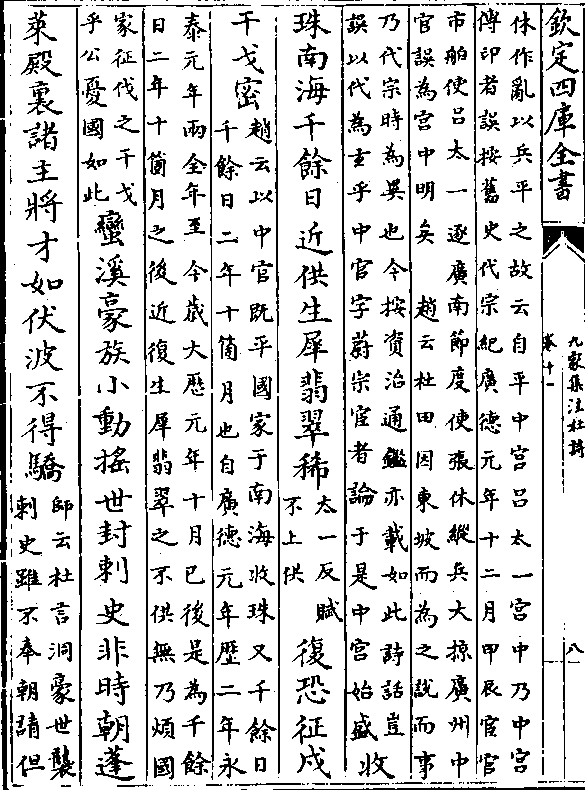 欽定四庫全書
九家集注杜詩
卷十一
八
休作亂以兵平之故云自平中宫吕太一宫中乃中宫
傳印者誤按舊史代宗紀廣德元年十二月甲辰宦官
市舶使吕太一逐廣南節度使張休縱兵大掠廣州中
官誤為宫中明矣 趙云杜田因東坡而為之說而事
乃代宗時為異也今按資治通鑑亦載如此詩話豈
誤以代為玄乎中官字蔚宗宦者論于是中宫始盛
收
珠南海千餘日近供生犀翡翠稀
太一反賦
不上供
復恐征戍
干戈密
趙云以中官既平國家于南海收珠又千餘日
千餘日二年十箇月也自廣德元年歷二年永
泰元年兩全年至今歲大歷元年十月已後是為千餘
日二年十箇月之後近復生犀翡翠之不供無乃煩國
家征伐之干戈
乎公憂國如此
蠻溪豪族小動摇世封刺史非時朝蓬
萊殿裏諸主將才如伏波不得驕
師云杜言洞豪世襲
刺史雖不奉朝請但